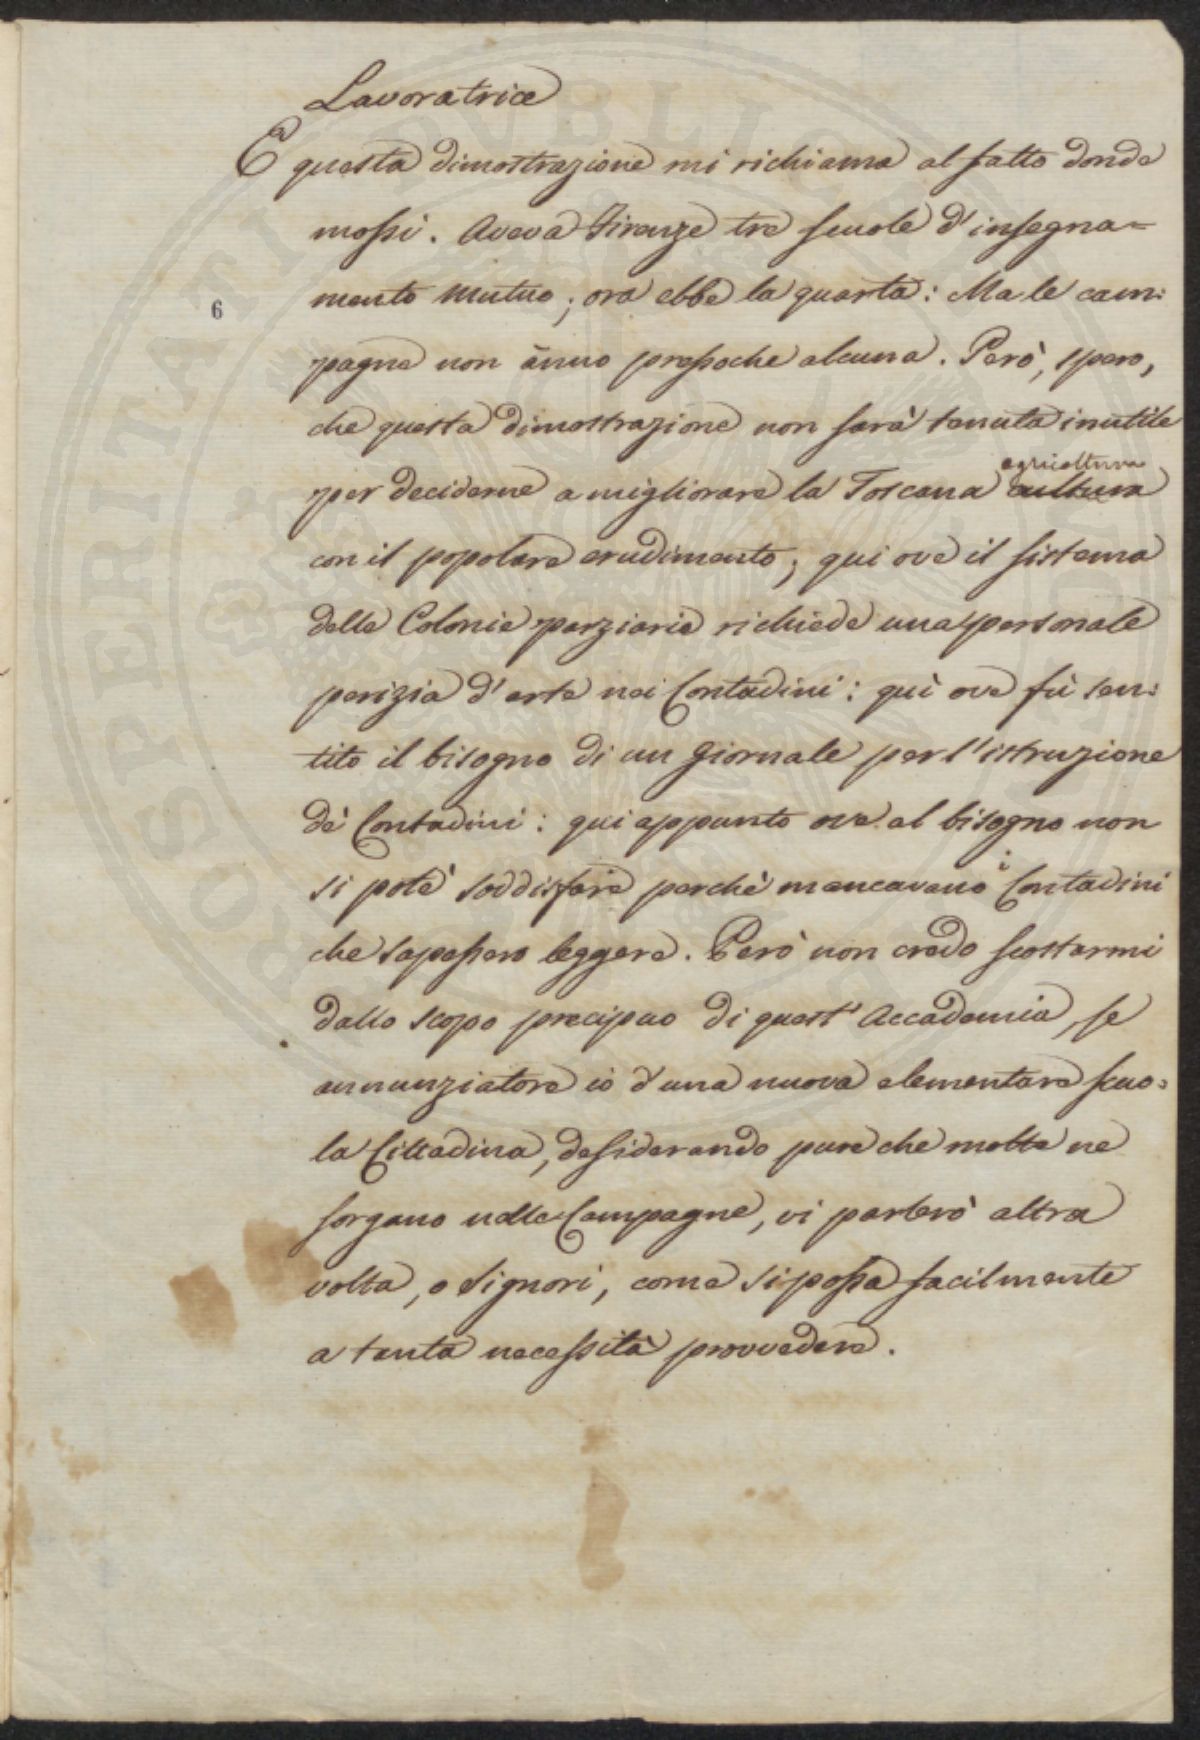 Lavoratrice
E questa dimostrazione mi richiama al fatto donde
mossi. Aveva Firenze tre scuole d'insegna=
mento Mutuo; ora ebbe la quarta: Ma le cam:
6
pagne non ànno pressoche alcuna. Però, spero,
che questa dimostrazione non sarà tenuta inutile
agricoltura
per deciderne a migliorare la Toscana cultura
con il popolare erudimento; qui ove il sistema
delle Colonie parziarie richiede una personale
perizia d'arte nei Contadini: quì ove fù sen:
tito il bisogno di un Giornale per l'istruzione
de' Contadini: qui appunto ove al bisogno non
si potè soddisfare perchè mancavano i Contadini
che sapessero leggere. Però non credo scostarmi
dallo scopo precipuo di quest' Accademia, se
annunziatore io d'una nuova elementare scuo=
la Cittadina, desiderando pure che molte ne
sorgano nelle Campagne, vi parlerò altra
volta, o Signori, come si possa facilmente
a tanta necessità provvedere.
PROSPERITATI PUBLICAE